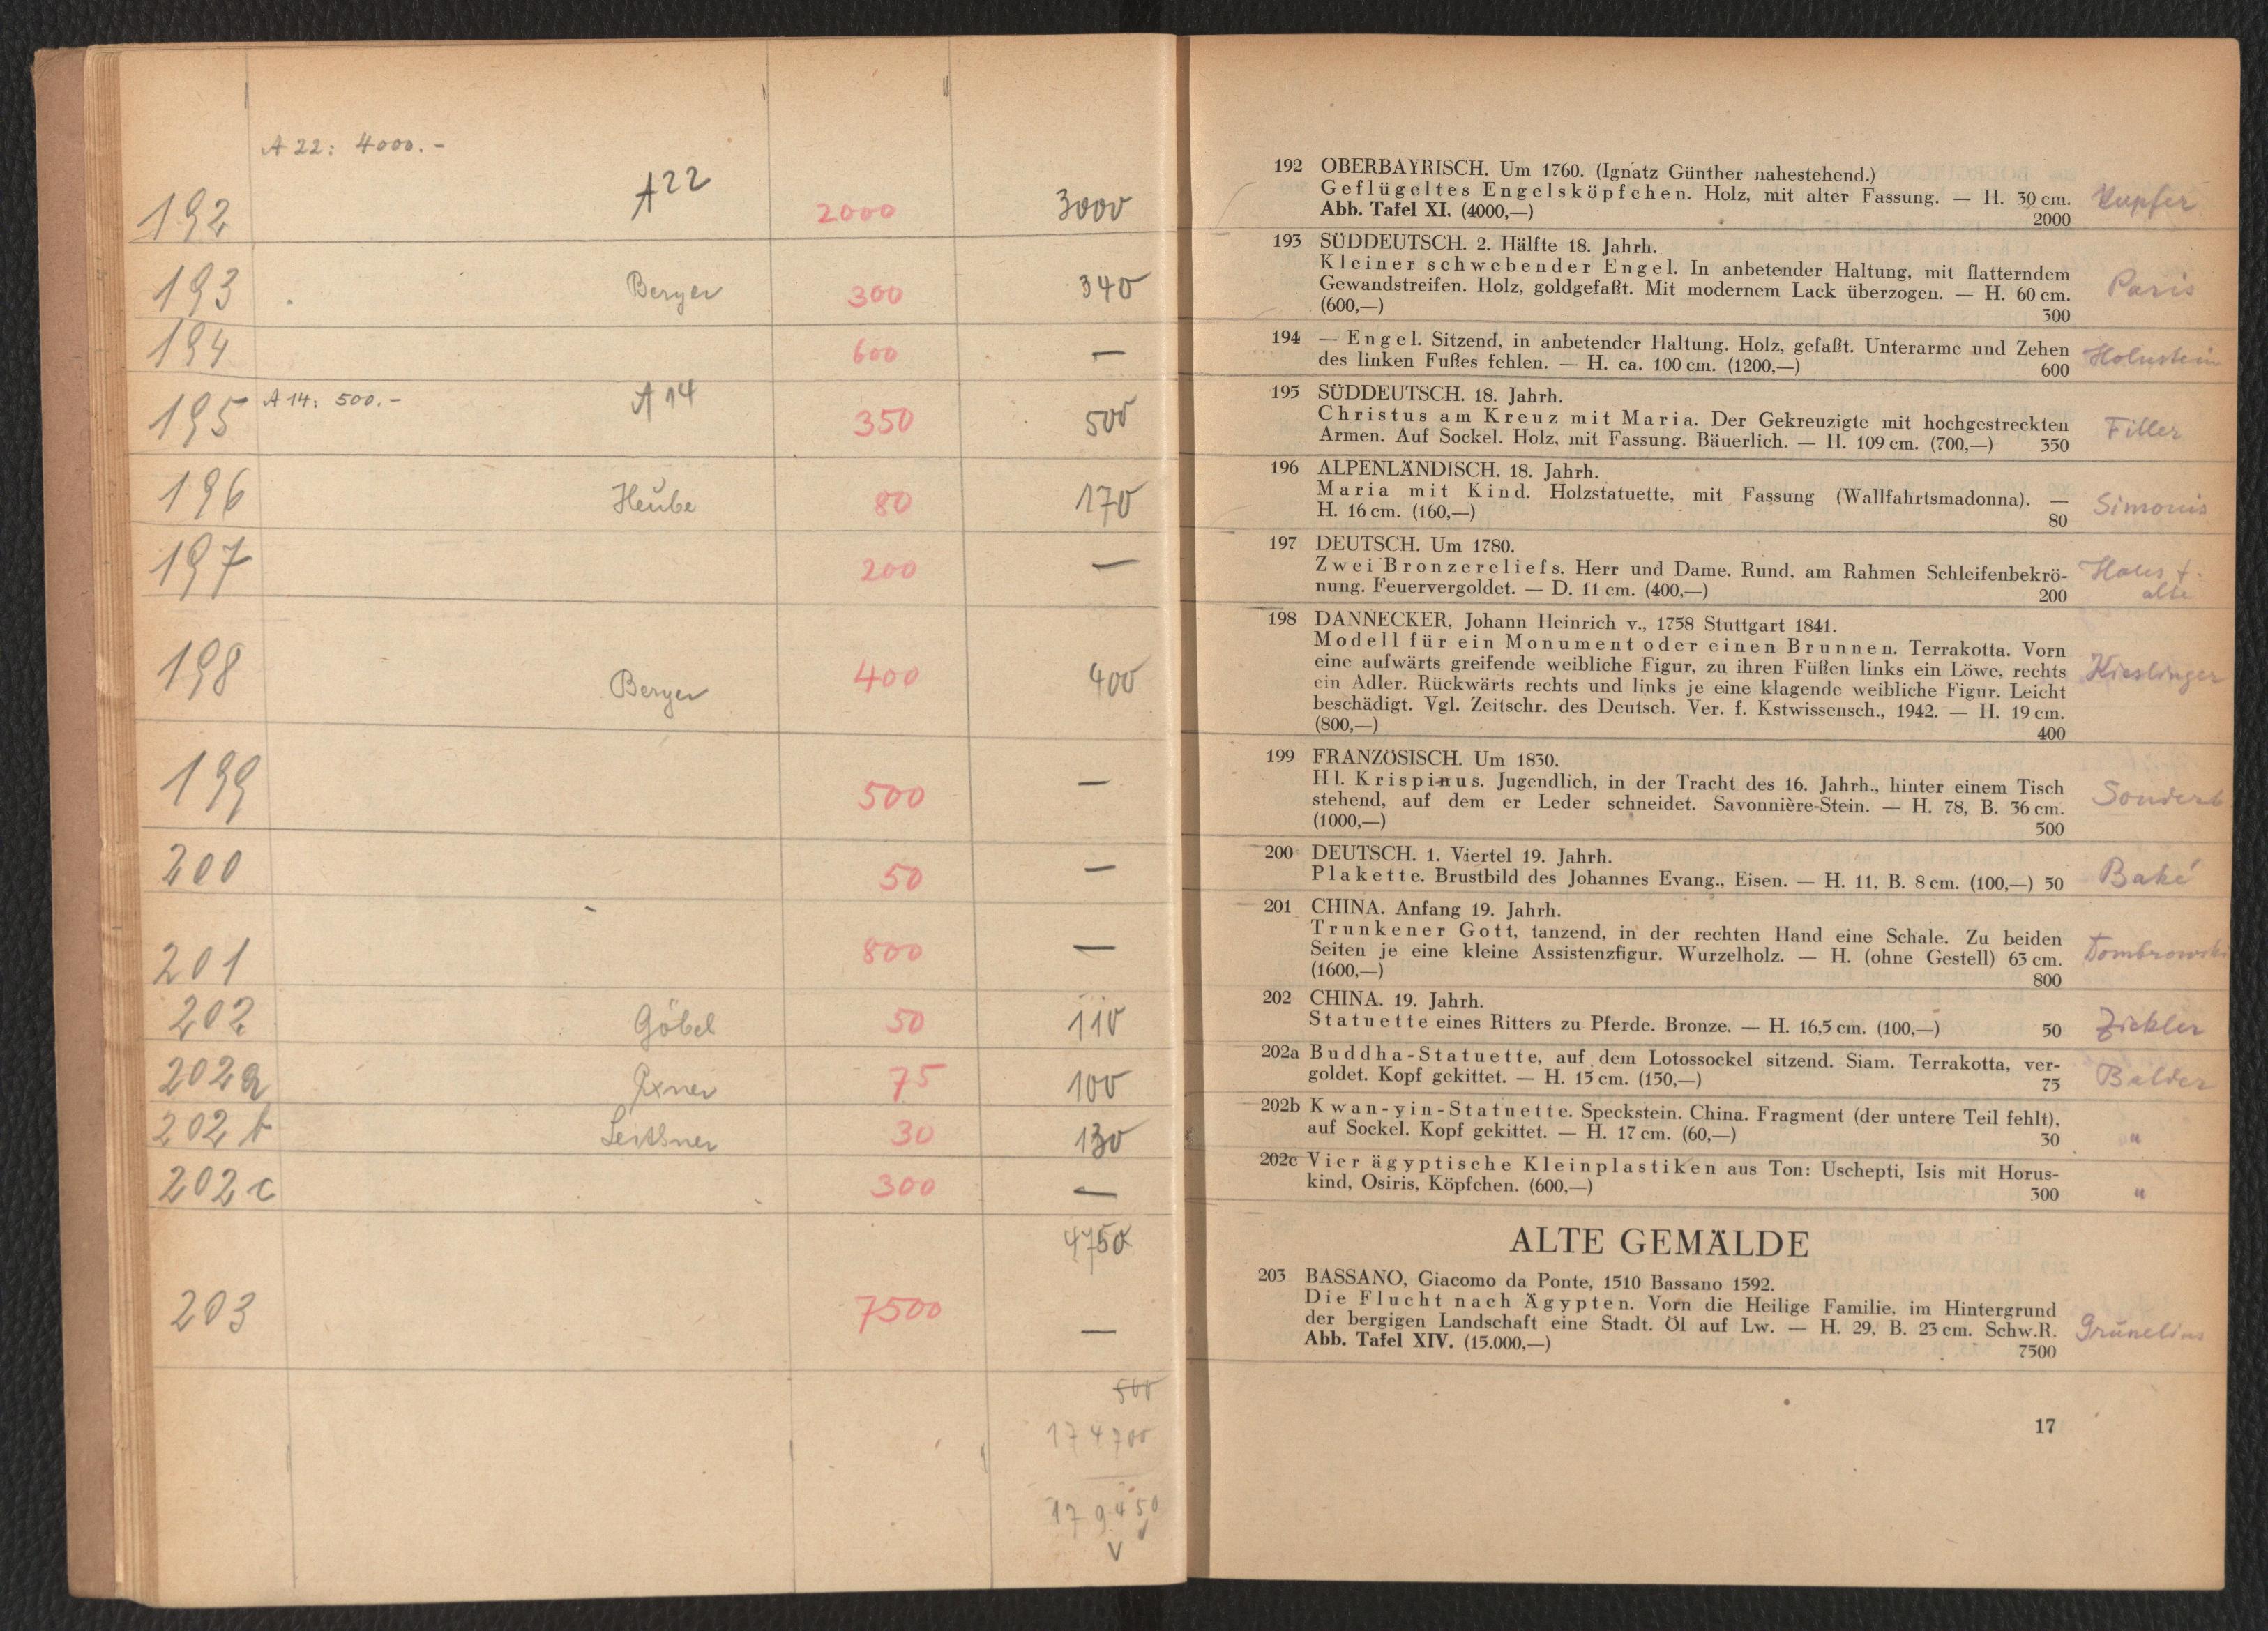 A 22: 4000.-
192 A22 2000 3000
193 Berger 300 340
194 600 —
195 A 14: 500.- A 14 350 500
196 Heube 80 170
197 200 —
198 Berger 400 400
199 500 —
200 50 —
201 800 —
202 Göbel 50 110
202a Exner 75 100
202b 30 130
202c 300 —
4750
203 7500 —
500
174700
179450
192 OBERBAYRISCH. Um 1760. (Ignatz Günther nahestehend.)
Geflügeltes Engelsköpfchen. Holz, mit alter Fassung. — H. 30 cm. Kupfer
Abb. Tafel XI. (4000,—) 2000
193 SÜDDEUTSCH. 2. Hälfte 18. Jahrh.
Kleiner schwebender Engel. In anbetender Haltung, mit flatterndem
Gewandstreifen. Holz, goldgefaßt. Mit modernem Lack überzogen. — H. 60 cm. Paris
(600,—) 300
194 — Engel. Sitzend, in anbetender Haltung. Holz, gefaßt. Unterarme und Zehen Holnstein
des linken Fußes fehlen. — H. ca. 100 cm. (1200,—) 600
195 SÜDDEUTSCH. 18. Jahrh.
Christus am Kreuz mit Maria. Der Gekreuzigte mit hochgestreckten Filler
Armen. Auf Sockel. Holz, mit Fassung. Bäuerlich. — H. 109 cm. (700,—) 350
196 ALPENLÄNDISCH. 18. Jahrh.
Maria mit Kind. Holzstatuette, mit Fassung (Wallfahrtsmadonna). — Simonis
H. 16 cm. (160,—) 80
197 DEUTSCH. Um 1780.
Zwei Bronzereliefs. Herr und Dame. Rund, am Rahmen Schleifenbekrö- Haus f.
nung. Feuervergoldet. — D. 11 cm. (400,—) 200 alte
198 DANNECKER, Johann Heinrich v., 1758 Stuttgart 1841.
Modell für ein Monument oder einen Brunnen. Terrakotta. Vorn
eine aufwärts greifende weibliche Figur, zu ihren Füßen links ein Löwe, rechts Kieslinger
ein Adler. Rückwärts rechts und links je eine klagende weibliche Figur. Leicht
beschädigt. Vgl. Zeitschr. des Deutsch. Ver. f. Kstwissensch., 1942. — H. 19 cm.
(800,—) 400
199 FRANZÖSISCH. Um 1830.
Hl. Krispinus. Jugendlich, in der Tracht des 16. Jahrh., hinter einem Tisch
stehend, auf dem er Leder schneidet. Savonnière-Stein. — H. 78, B. 36 cm.
(1000,—) 500
200 DEUTSCH. 1. Viertel 19. Jahrh.
Plakette. Brustbild des Johannes Evang., Eisen. — H. 11, B. 8 cm. (100,—) 50 Baké
201 CHINA. Anfang 19. Jahrh.
Trunkener Gott, tanzend, in der rechten Hand eine Schale. Zu beiden
Seiten je eine kleine Assistenzfigur. Wurzelholz. — H. (ohne Gestell) 63 cm. Dombrowski
(1600,—) 800
202 CHINA. 19. Jahrh.
Statuette eines Ritters zu Pferde. Bronze. — H. 16,5 cm. (100,—) 50 Zickler
202a Buddha-Statuette, auf dem Lotossockel sitzend. Siam. Terrakotta, ver-
goldet. Kopf gekittet. — H. 15 cm. (150,—) 75 Balder
202b Kwan-yin-Statuette. Speckstein. China. Fragment (der untere Teil fehlt),
auf Sockel. Kopf gekittet. — H. 17 cm. (60,—) 30 "
202c Vier ägyptische Kleinplastiken aus Ton: Uschepti, Isis mit Horus-
kind, Osiris, Köpfchen. (600,—) 300 "
ALTE GEMÄLDE
203 BASSANO, Giacomo da Ponte, 1510 Bassano 1592.
Die Flucht nach Ägypten. Vorn die Heilige Familie, im Hintergrund
der bergigen Landschaft eine Stadt. Öl auf Lw. — H. 29, B. 23 cm. Schw.R. Grünelius
Abb. Tafel XIV. (15.000,—) 7500
17